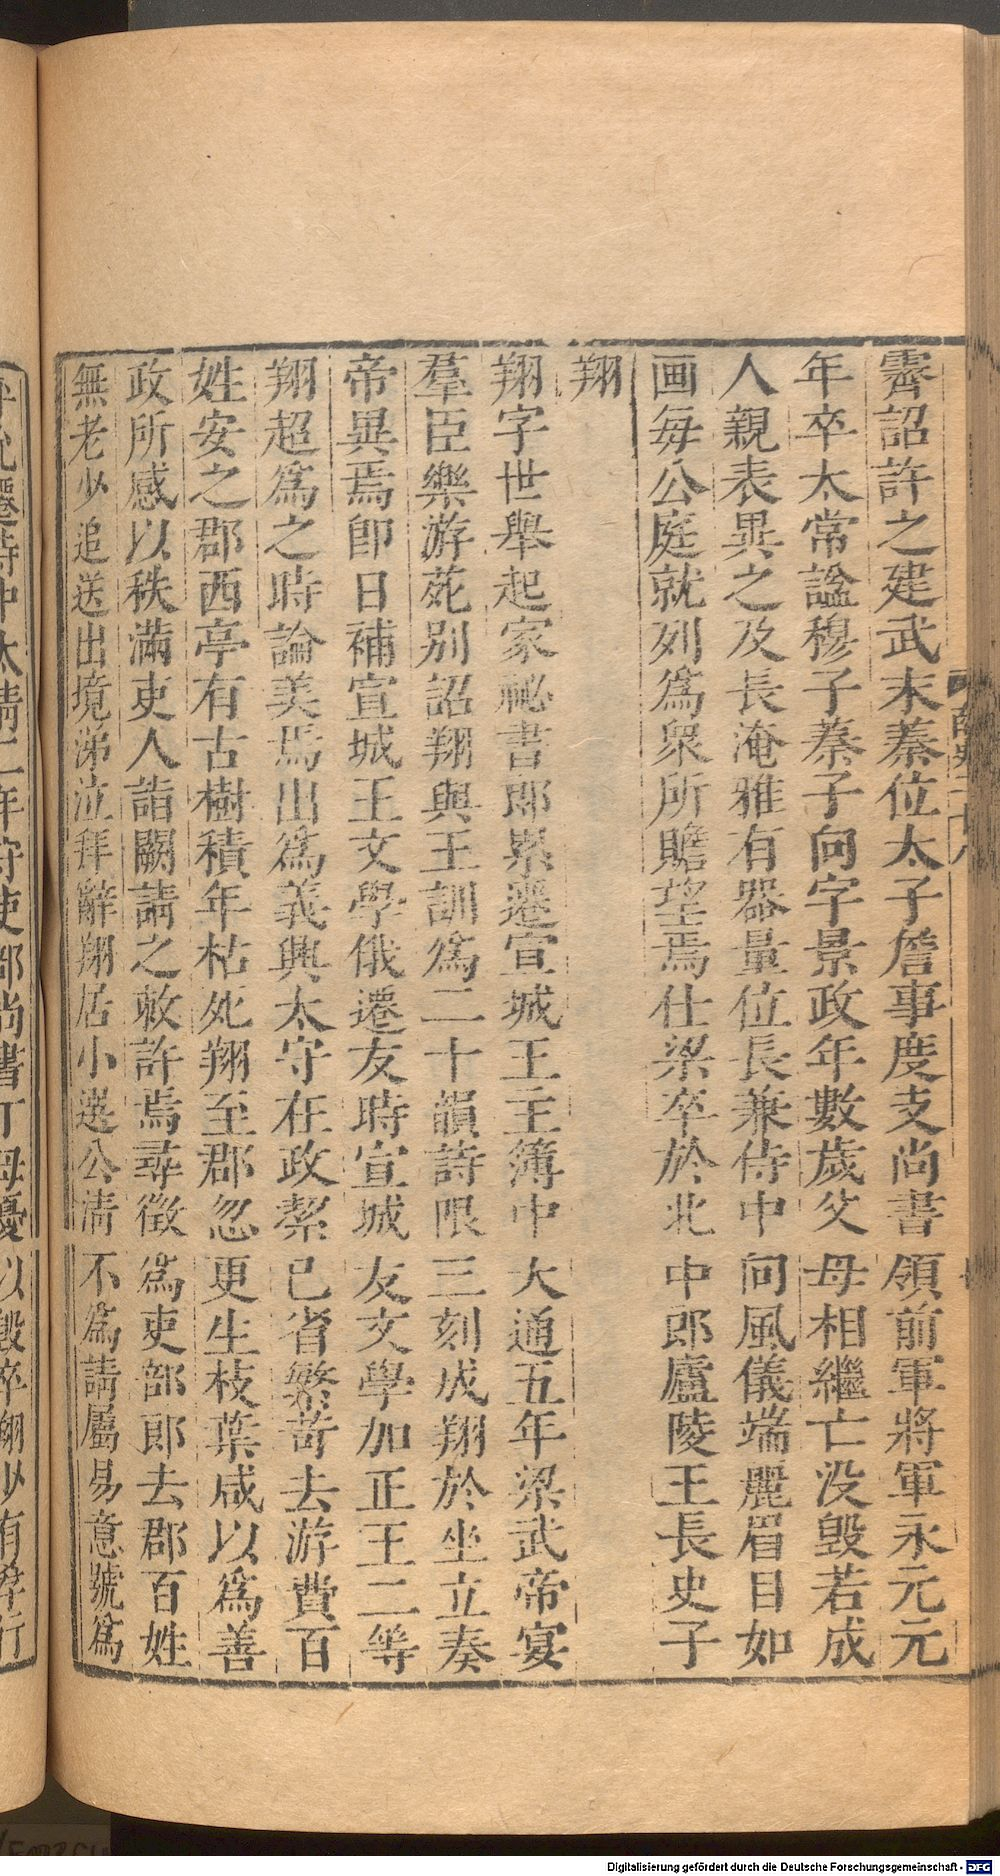 霽詔許之建武末蓁位太子詹事度支尚書領前軍將軍永元元
年卒太常謚穆子蓁子向字景政年數歲父母相繼亡没毀若成
人親表異之及長淹雅有器量位長兼侍中向風儀端麗眉目如
画每公庭就列爲衆所瞻望焉仕梁卒於北中郎廬陵王長史子
翔
翔字世舉起家祕書郎累遷宣城王主簿中大通五年梁武帝宴
羣臣樂游苑别詔翔與王訓爲二十韻詩限三刻成翔於坐立奏
帝異焉即日補宣城王文學俄遷友時宣城友文學加正王二等
翔超爲之時論美焉出爲義興太守在政絜已省繁苛去游費百
姓安之郡西亭有古樹積年枯死翔至郡忽更生枝葉咸以爲善
政所感以秩滿吏人詣闕請之敕許焉尋徵爲吏部郎去郡百姓
無老少追送出境涕泣拜辭翔居小選公清不爲請屬易意號爲
遷侍中太清二年守吏部尚書丁母憂以毀卒翔少有孝行
Digitalisierung gefördert durch die Deutsche Forschungsgemeinschaft - DFG